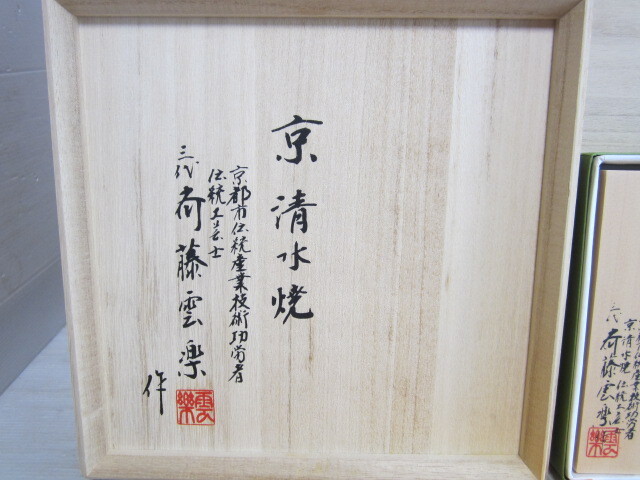 京清水焼
京都市伝統産業技術功労者
伝統工芸士
三代 斉藤雲楽
作
雲楽
京清水焼 伝統工芸士
三代 斉藤雲楽
雲楽